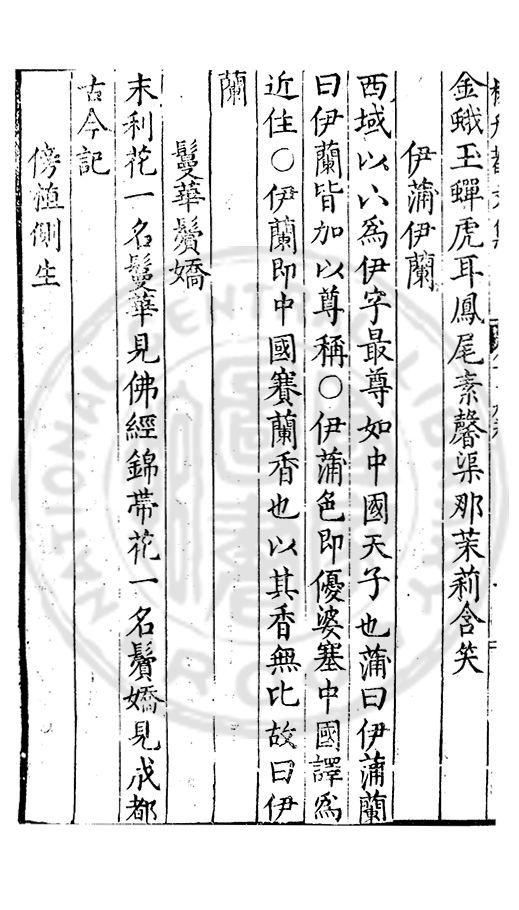 金蛾玉蟬虎耳鳳尾素馨渠那茉莉含笑
伊蒲伊蘭
西域以八為伊字最尊如中國天子也蒲曰伊蒲蘭
曰伊蘭皆加以尊稱○伊蒲色即優婆塞中國譯爲
近住○伊蘭即中國賽蘭香也以其香無比故曰伊
蘭
鬘華鬢嬌
末利花一名鬘華見佛經錦帶花一名鬢嬌見成都
古今記
傍植側生